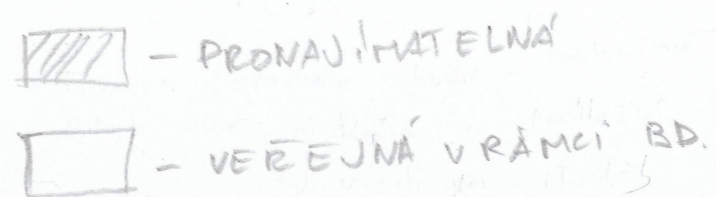 - PRONAJÍMATELNÁ
- VEŘEJNÁ V RÁMCI BD.